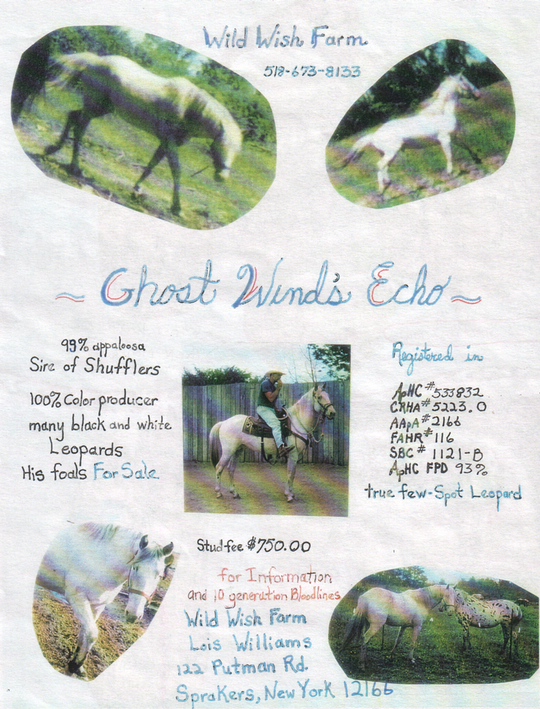 Wild Wish Farm
518-673-8133
~ Ghost Wind's Echo ~
99% appaloosa
Sire of Shufflers
100% Color producer
many black and white
Leopards
His foals For Sale
Registered in
ApHC # 533832
CRHA # 5223.0
AApA # 2166
FAHR # 116
SBC # 1121-B
ApHC FPD 93%
true few-Spot Leopard
Stud fee $750.00
for Information
and 10 generation Bloodlines
Wild Wish Farm
Lois Williams
122 Putman Rd.
Sprakers, New York 12166